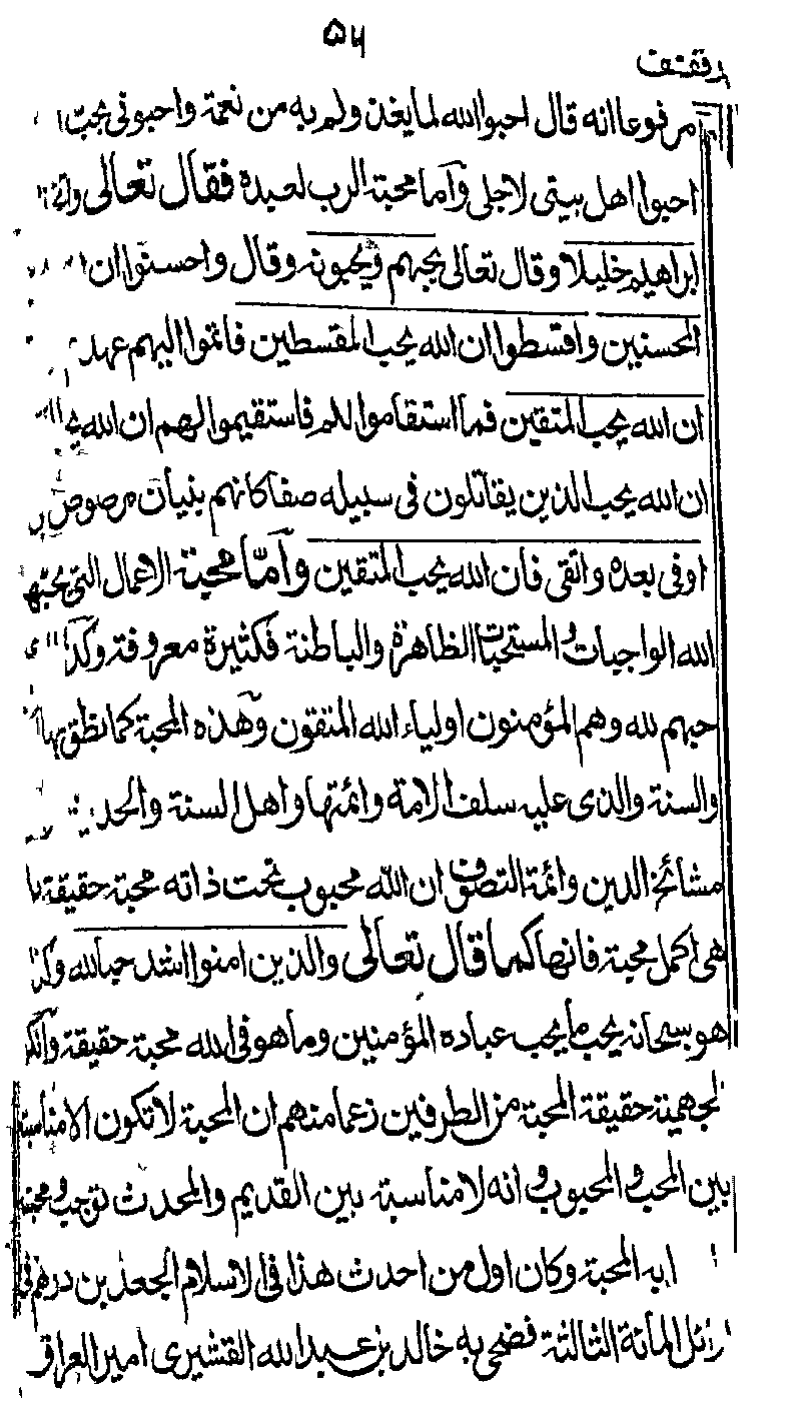 ۵۶
مرفوعا انه قال احبوا الله لما يغذولم به من نعمة واحبونى بحب ا
احبوا اهل بيتى لاجلى وآما محبة الرب لعبده فقال تعالى
ابراهيم خليلا وقال تعالى يحبهم ويحبونه وقال واحسنوا ان
المحسنين واقسطوا ان الله يحب المقسطين فاتموا اليهم عهد
ان الله يحب المتقين فما استقاموا لكم فاستقيموا لهم ان الله
ان الله يحب الذين يقاتلون فى سبيله صفا كانهم بنيان مرصوص
اوفى بعده واتقى فان الله يحب المتقين وآمّا محبة الاعمال التى يحبها
الله الواجبات والمستحبات الظاهرة والباطنة فكثيرة معروفة وكذا
حبهم لله وهم المؤمنون اولياء الله المتقون وهذه المحبة كما نطق بها
والسنة والذى عليه سلف الامة وائمتها واهل السنة والحد
مشائخ الدين وائمة التصوف ان الله محبوب تحت ذاته محبة حقيقة
هى اكمل محبة فانها كما قال تعالى والذين امنوا اشد حبا لله وكذ
هو سبحانه يحب ما يحب عباده المؤمنين وما هو فى الله محبة حقيقة وانكر
لجهمية حقيقة المحبة من الطرفين زعما منهم ان المحبة لا تكون الا مناسبة
بين المحب والمحبوب وانه لا مناسبة بين القديم والمحدث توجب محبة
المحبة وكان اول من احدث هذا فى الاسلام الجعد بن درهم فى
ائل المائة الثالثة فضحى به خالد بن عبد الله القشيرى امير العراق